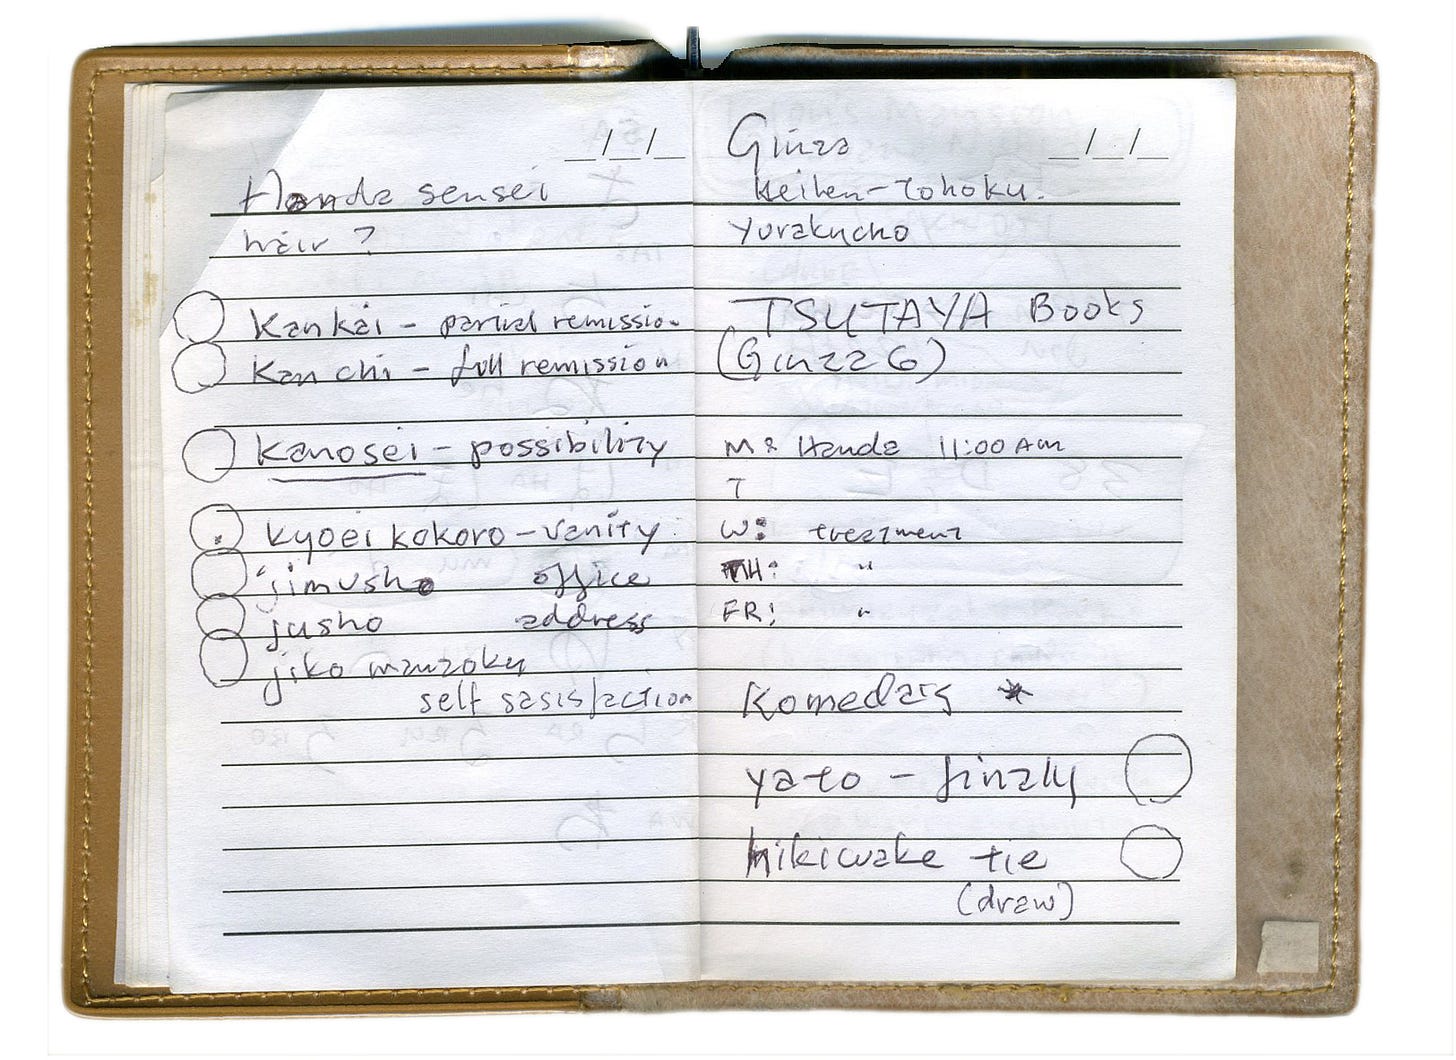 _/_/_
Honda sensei
hair ?
Kankai - partial remission
Kanchi - full remission
Kanosei - possibility
Kyoei kokoro - vanity
jimusho office
jusho address
jiko manzoku
self sasisfaction
Ginza _/_/_
Keihen-Tohoku.
Yurakucho
TSUTAYA Books
(Ginza 6)
M: Handa 11:00 AM
T
W: treatment
TH: "
FR: "
Komedas *
yato - finaly
hikiwake tie
(draw)